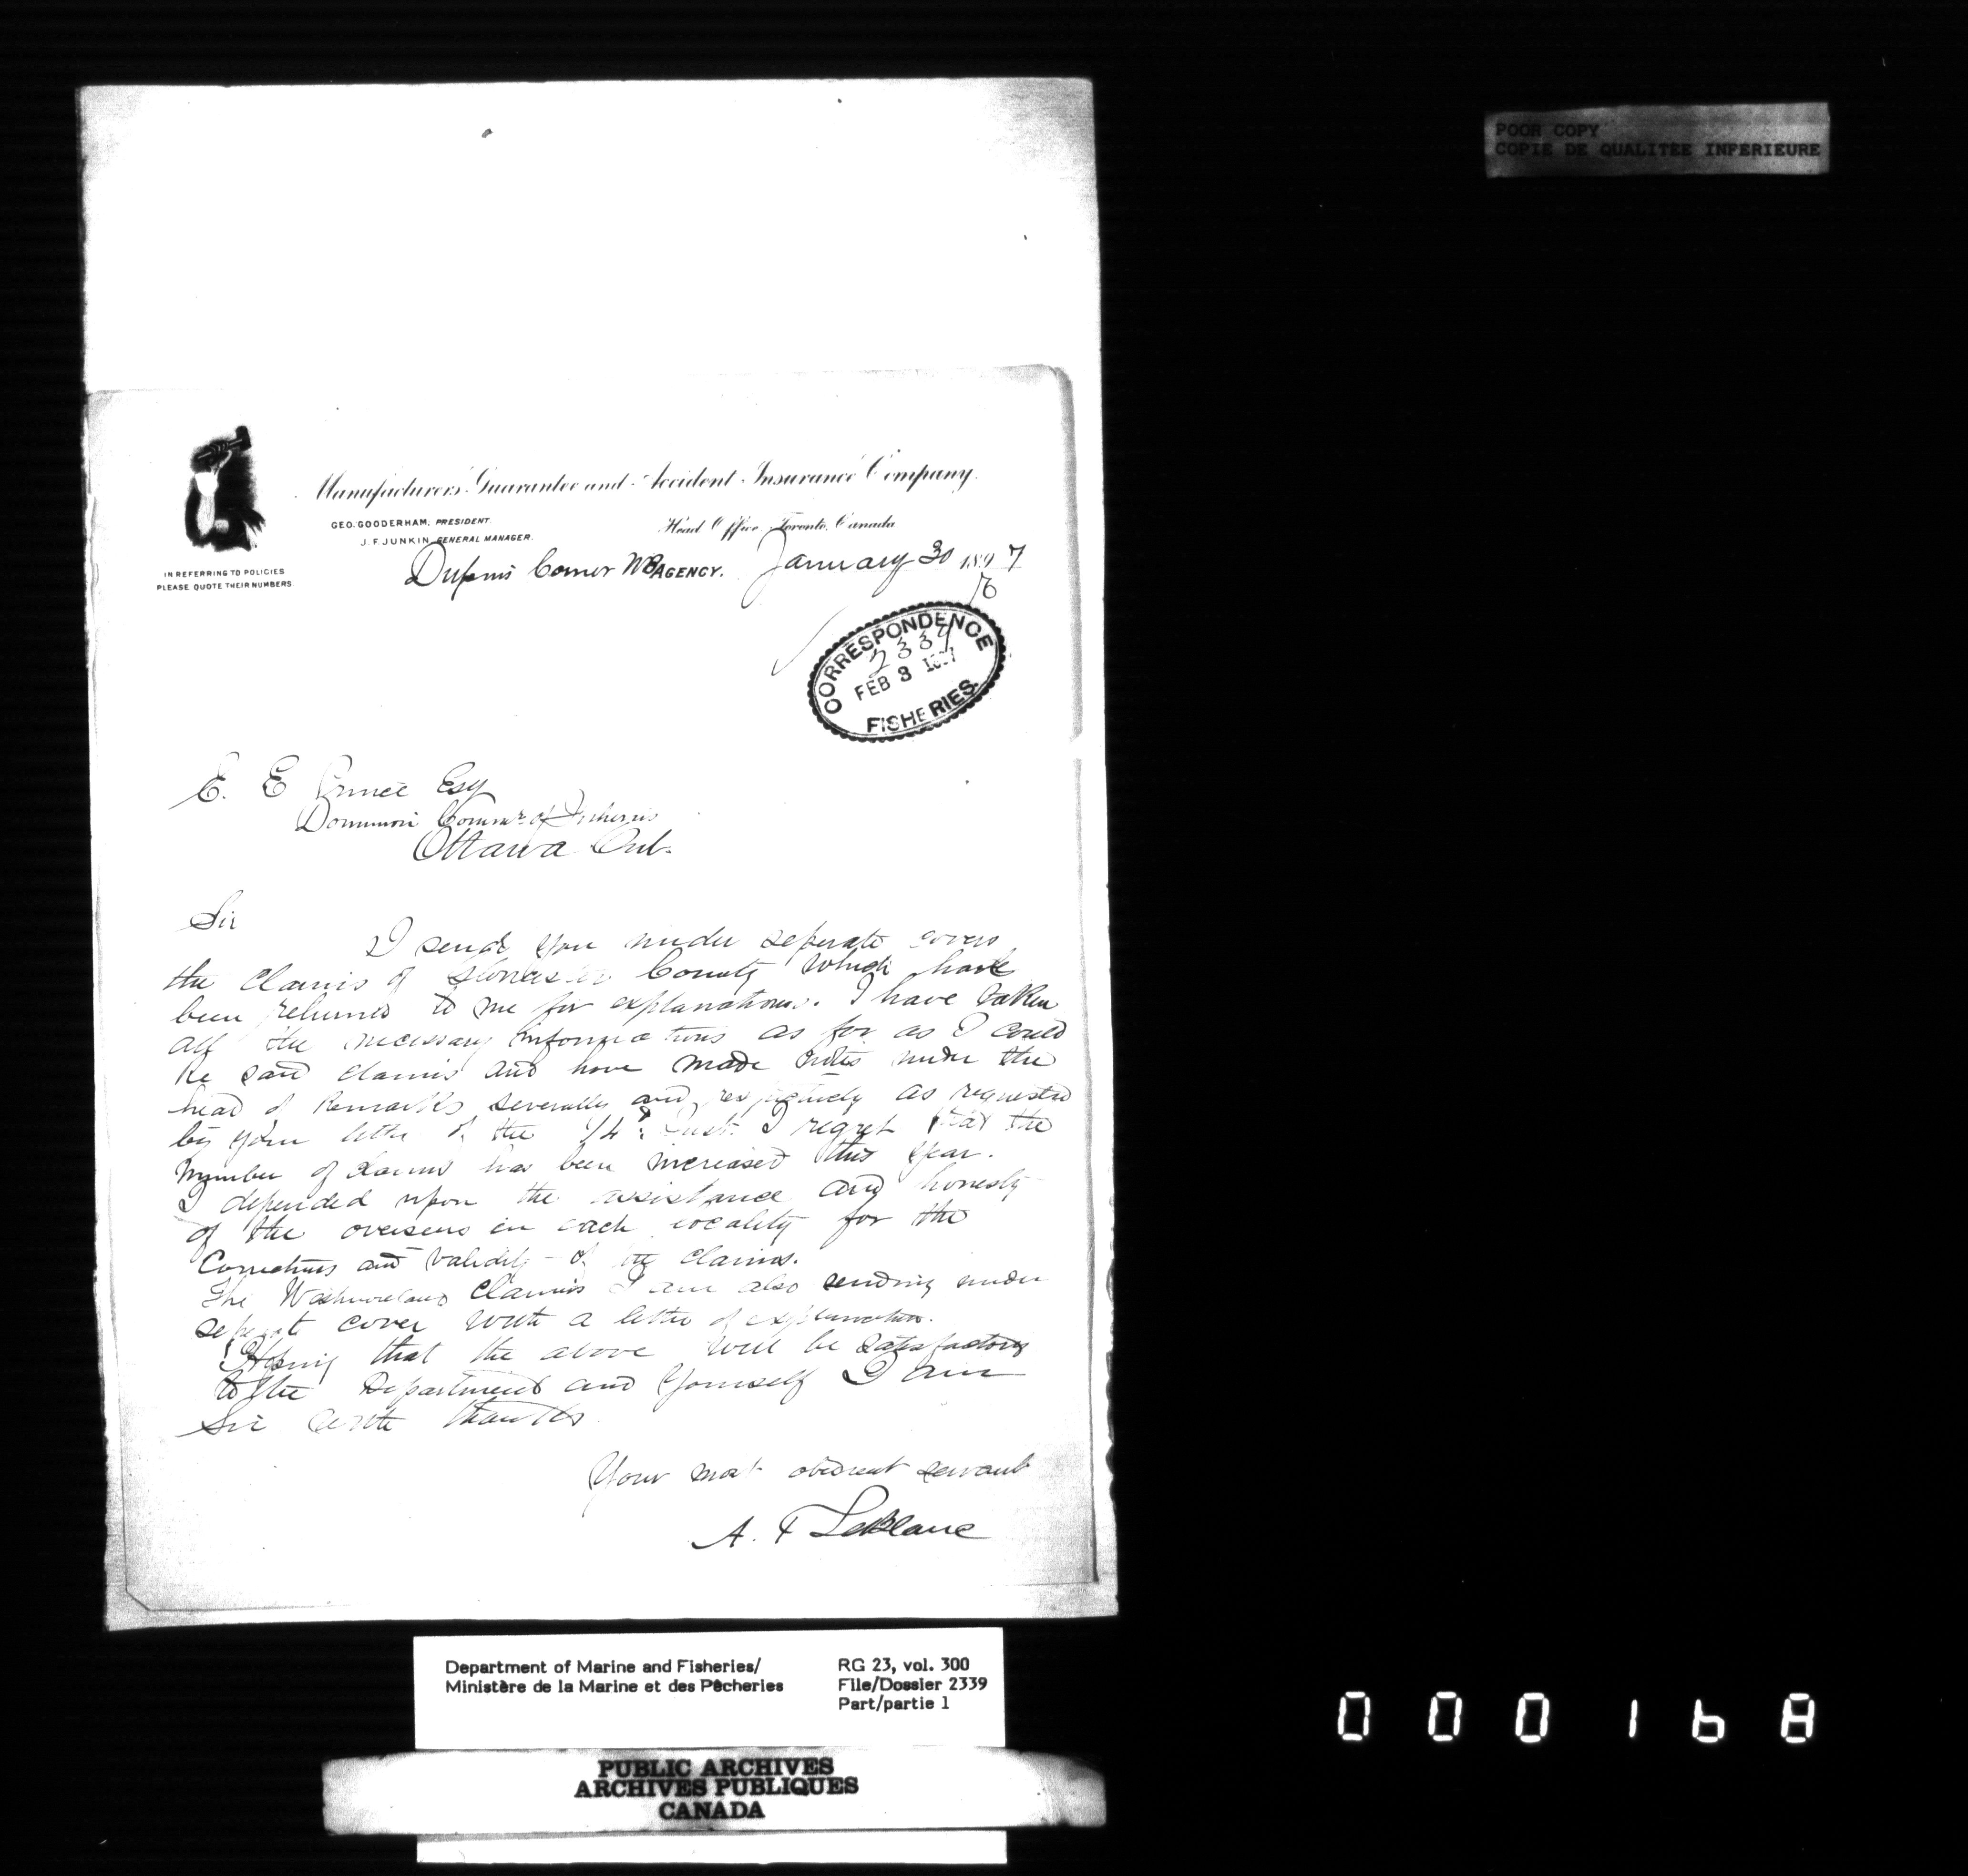 POOR COPY
COPIE DE QUALITEE INFERIEURE
Manufacturers' Guarantee and Accident Insurance Company.
GEO. GOODERHAM, PRESIDENT.
J. F. JUNKIN, GENERAL MANAGER.
Head Office, Toronto, Canada
IN REFERRING TO POLICIES
PLEASE QUOTE THEIR NUMBERS
Dupuis Corner NB AGENCY. January 30 1897
CORRESPONDENCE
2339
FEB 3 1897
FISHERIES.
E. E Prince Esq
Dominion Commr of Fisheries
Ottawa Ont.
Sir
I send you under seperate covers
the claims of Gloucester County which have
been returned to me for explanations. I have taken
all the necessary informations as far as I could
Re said claims and have made notes under the
head of Remarks severally and respectively as requested
by your letter of the 14th Inst. I regret that the
number of claims has been increased this year.
I depended upon the assistance and honesty
of the overseers in each locality for the
Correctness and validity of the claims.
The Westmoreland Claims I am also sending under
seperate cover with a letter of explanation.
Hoping that the above will be satisfactory
to the Department and Yourself I am
Sir with thanks
Your most obedient servant
A. F LeBlanc
Department of Marine and Fisheries/
Ministère de la Marine et des Pêcheries
RG 23, vol. 300
File/Dossier 2339
Part/partie 1
PUBLIC ARCHIVES
ARCHIVES PUBLIQUES
CANADA
000168